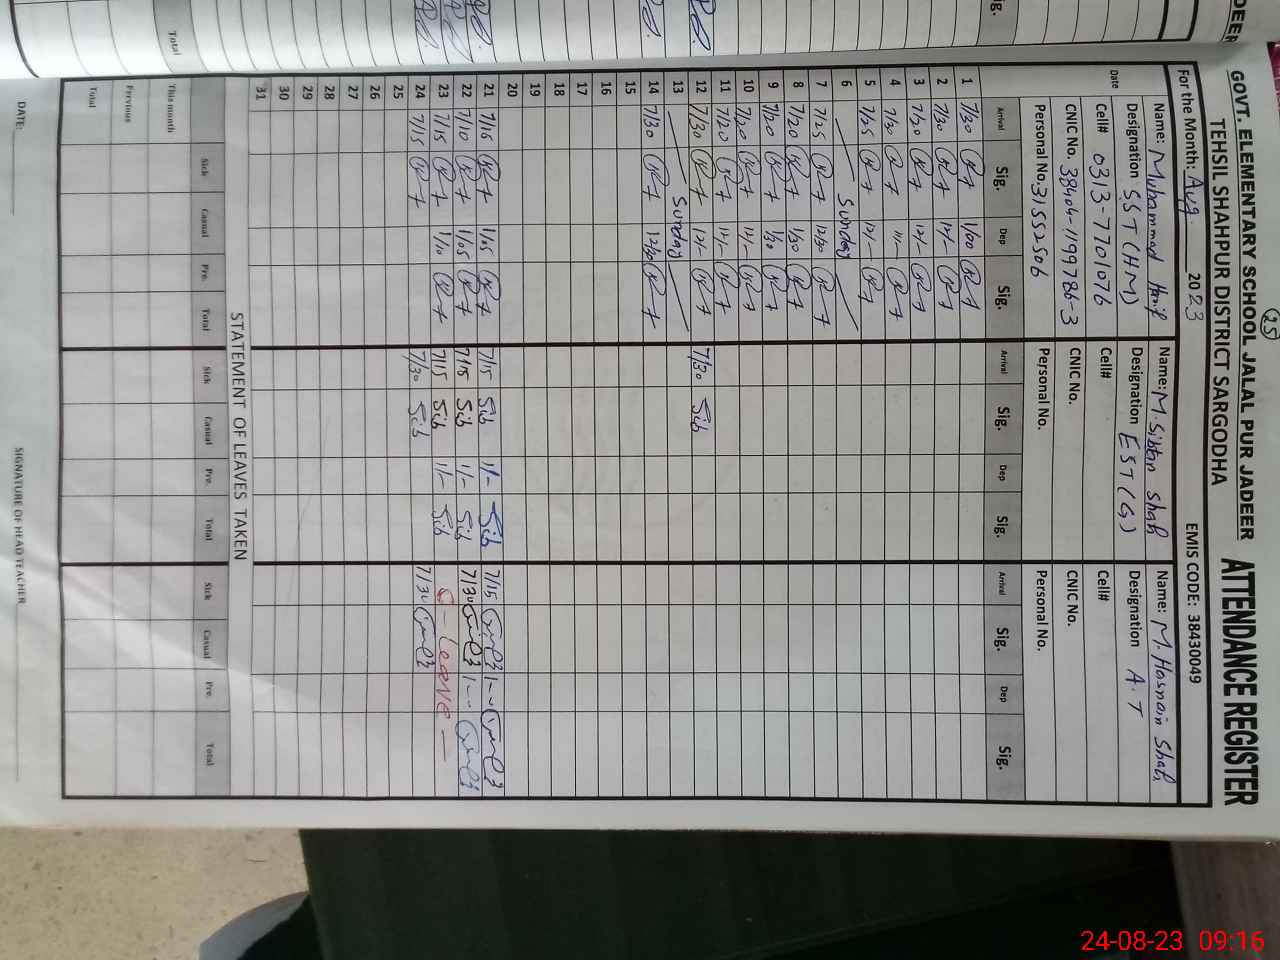 25
GOVT. ELEMENTARY SCHOOL JALAL PUR JADEER ATTENDANCE REGISTER
TEHSIL SHAHPUR DISTRICT SARGODHA
For the Month: Aug. 2023 EMIS CODE: 38430049
Name: Muhammad Hanif Name: M. Sibten Shah Name: M. Hasnain Shah
Designation SST (HM) Designation EST (G) Designation A.T
Cell# 0313-7701076 Cell# Cell#
CNIC No. 38404-1199786-3 CNIC No. CNIC No.
Personal No. 31552506 Personal No. Personal No.
Date Arrival Sig. Dep Sig. Arrival Sig. Dep Sig. Arrival Sig. Dep Sig.
1 7/30 1/00
2 7/30 12/-
3 7/20 12/-
4 7/30 11/-
5 7/25 12/-
6 Sunday
7 7/25 12/30
8 7/20 1/30
9 7/20 1/30
10 7/20 12/-
11 7/20 12/-
12 7/30 12/- 7/30 Sib
13 Sunday
14 7/30 12/30
15
16
17
18
19
20
21 7/15 1/05 7/15 Sib 1/- Sib 7/15
22 7/10 1/05 7/15 Sib 1/- Sib 7/30
23 7/15 1/10 7/15 Sib 1/- Sib C - Leave
24 7/15 7/30 Sib 7/30
25
26
27
28
29
30
31
STATEMENT OF LEAVES TAKEN
Sick Casual Pre. Total Sick Casual Pre. Total Sick Casual Pre. Total
This month
Pervious
Total
DATE: SIGNATURE OF HEAD TEACHER
Total
DEER
Sig.
24-08-23 09:16